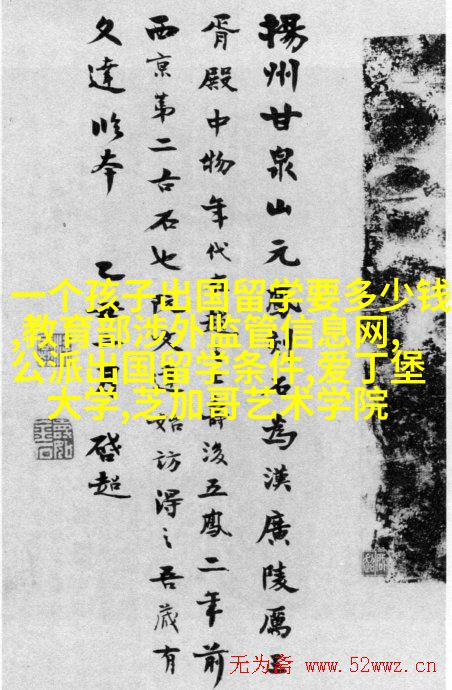 揚州甘泉山元鳳刻石為漢廣陵厲王
胥殿中物年代上後五鳳二年前
西京第二古石也阮文達始訪得之吾藏有
文達本
啓超
一个孩子出国留学要多少钱
,教育部涉外监管信息网,
公派出国留学条件,爱丁堡
大学,芝加哥艺术学院
无为斋 www.52wwz.cn